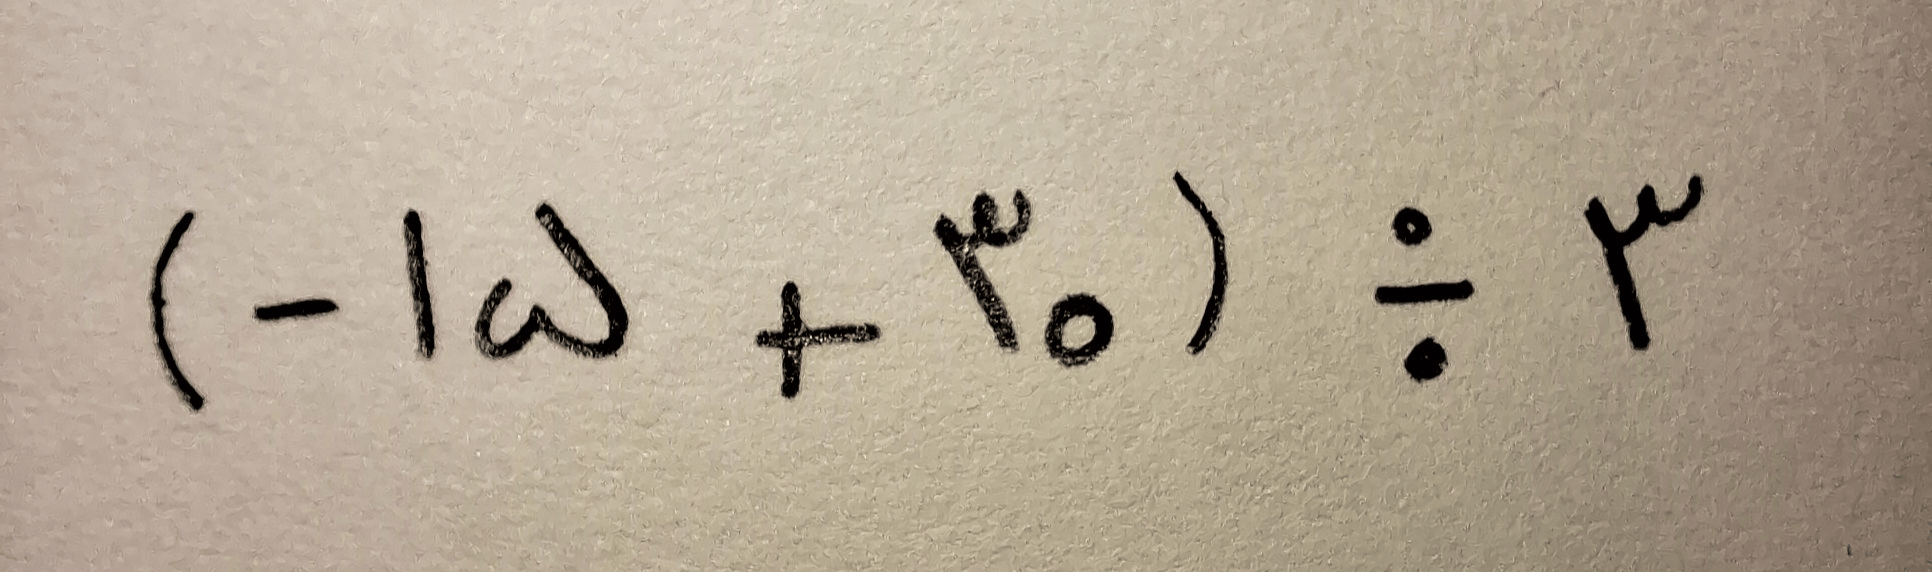 (-۱۵ + ۳۰) ÷ ۳